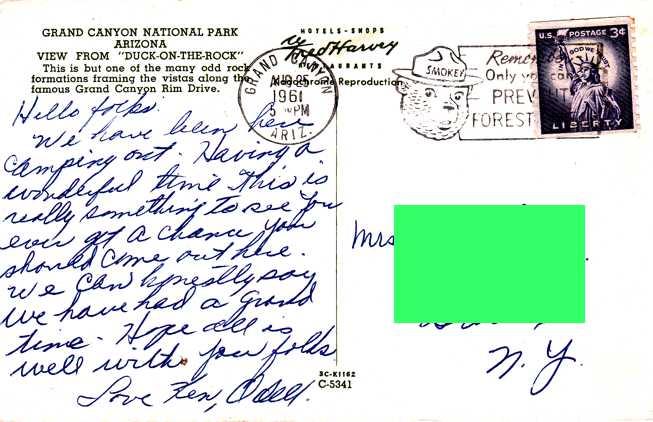 GRAND CANYON NATIONAL PARK
ARIZONA
VIEW FROM "DUCK-ON-THE-ROCK"
This is but one of the many odd rock
formations framing the vistas along the
famous Grand Canyon Rim Drive.
Hello folks.
We have been here
camping out. Having a
wonderful time This is
really something to see you
ever get a chance you
should come out here.
We can honestly say
We have had a grand
time. Hope all is
well with you folks
Love Ken, Odell.
HOTELS-SHOPS
by Fred Harvey
RESTAURANTS
Natochrome Reproduction
GRAND CANYON
AUG 25
1961
5 PM
ARIZ.
SMOKEY
Only you can
PREVENT
FOREST
U.S. POSTAGE 3¢
IN GOD WE TRUST
LIBERTY
Mrs
N.Y.
SC-K1162
C-5341